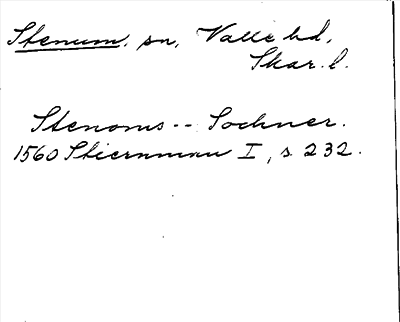 Stenum, sn, Valle hd,
Skar. l.
Stenoms -- Sochner.
1560 Stiernman I, s 232.